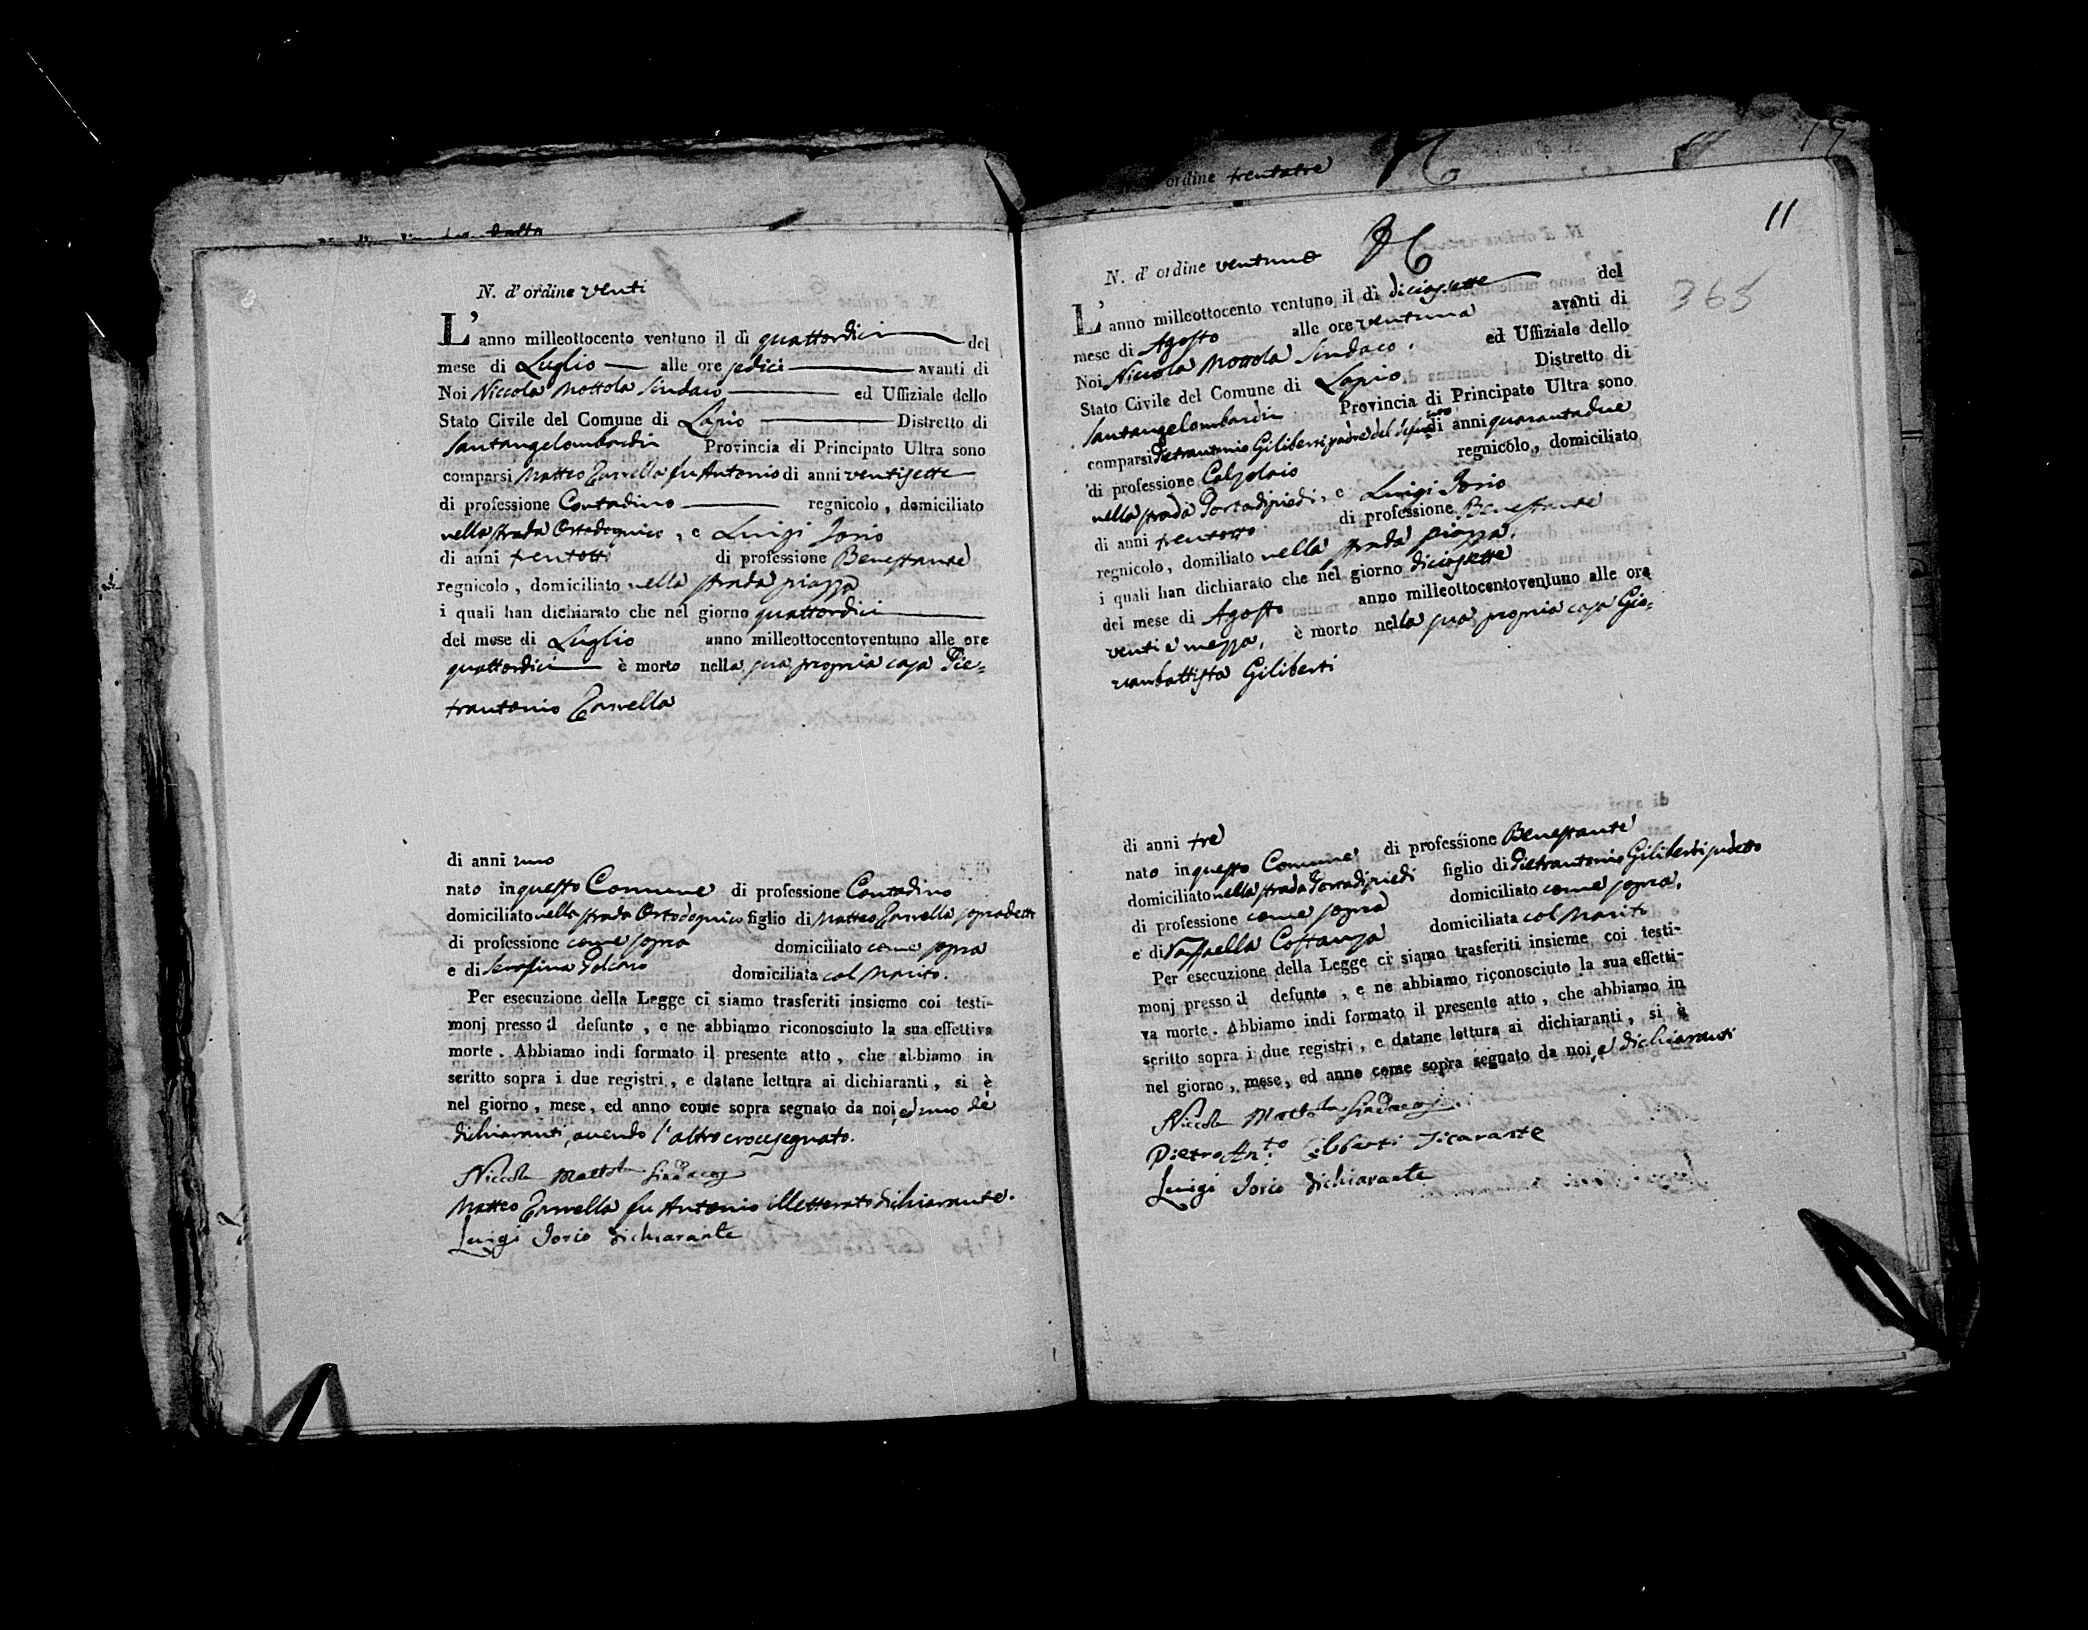 N. d' ordine venti
L' anno milleottocento ventuno il dì quattordici del
mese di Luglio alle ore sedici avanti di
Noi Niccola Mottola Sindaco ed Uffiziale dello
Stato Civile del Comune di Lapio Distretto di
Santangelombardi Provincia di Principato Ultra sono
comparsi Matteo Zarrella fu Antonio di anni ventisette
di professione Contadino regnicolo, domiciliato
nella strada, e Luigi Iorio
di anni trentotto di professione Benestante
regnicolo, domiciliato nella strada piazza
i quali han dichiarato che nel giorno quattordici
del mese di Luglio anno milleottocentoventuno alle ore
quattordici è morto nella sua propria casa Pie=
trantonio Zarrella
di anni uno
nato in questo Comune di professione Contadino
domiciliato nella strada figlio di Matteo Zarrella sopradetto
di professione come sopra domiciliato come sopra
e di Serafina domiciliata col Marito.
Per esecuzione della Legge ci siamo trasferiti insieme coi testi-
monj presso il defunto, e ne abbiamo riconosciuto la sua effettiva
morte. Abbiamo indi formato il presente atto, che abbiamo in
scritto sopra i due registri, e datane lettura ai dichiaranti, si è
nel giorno, mese, ed anno come sopra segnato da noi, ed uno dè
dichiaranti, avendo l'altro crocesegnato.
Niccola Mottola Sindaco
Matteo Zarrella fu Antonio illetterato dichiarante.
Luigi Iorio dichiarante
ordine trentatre
11
365
N. d' ordine ventuno
L' anno milleottocento ventuno il dì diciassette del
mese di Agosto alle ore ventuna avanti di
Noi Niccola Mottola Sindaco. ed Uffiziale dello
Stato Civile del Comune di Lapio Distretto di
Santangelombardi Provincia di Principato Ultra sono
comparsi Pietrantonio Giliberti padre del defunto di anni quarantadue
di professione Calzolaio regnicolo, domiciliato
nella strada Portadipiedi, e Luigi Iorio
di anni trentotto di professione Benestante
regnicolo, domiliato nella strada piazza.
i quali han dichiarato che nel giorno diciassette
del mese di Agosto anno milleottocentoventuno alle ore
venti e mezza, è morto nella sua propria casa Gio=
vanbattista Giliberti
di anni tre di professione Benestante
nato in questo Comune figlio di Pietrantonio Giliberti sudetto
domiciliato nella strada Portadipiedi domiciliato come sopra.
di professione come sopra domiciliata col Marito
e di Raffaella Costanza
Per esecuzione della Legge ci siamo trasferiti insieme coi testi-
monj presso il defunto, e ne abbiamo riconosciuto la sua effetti-
va morte. Abbiamo indi formato il presente atto, che abbiamo in
scritto sopra i due registri, e datane lettura ai dichiaranti, si è
nel giorno, mese, ed anno come sopra segnato da noi, e dichiaranti
Niccola Mottola Sindaco
Pietro Ant.to Giliberti dicarante
Luigi Iorio dichiarante